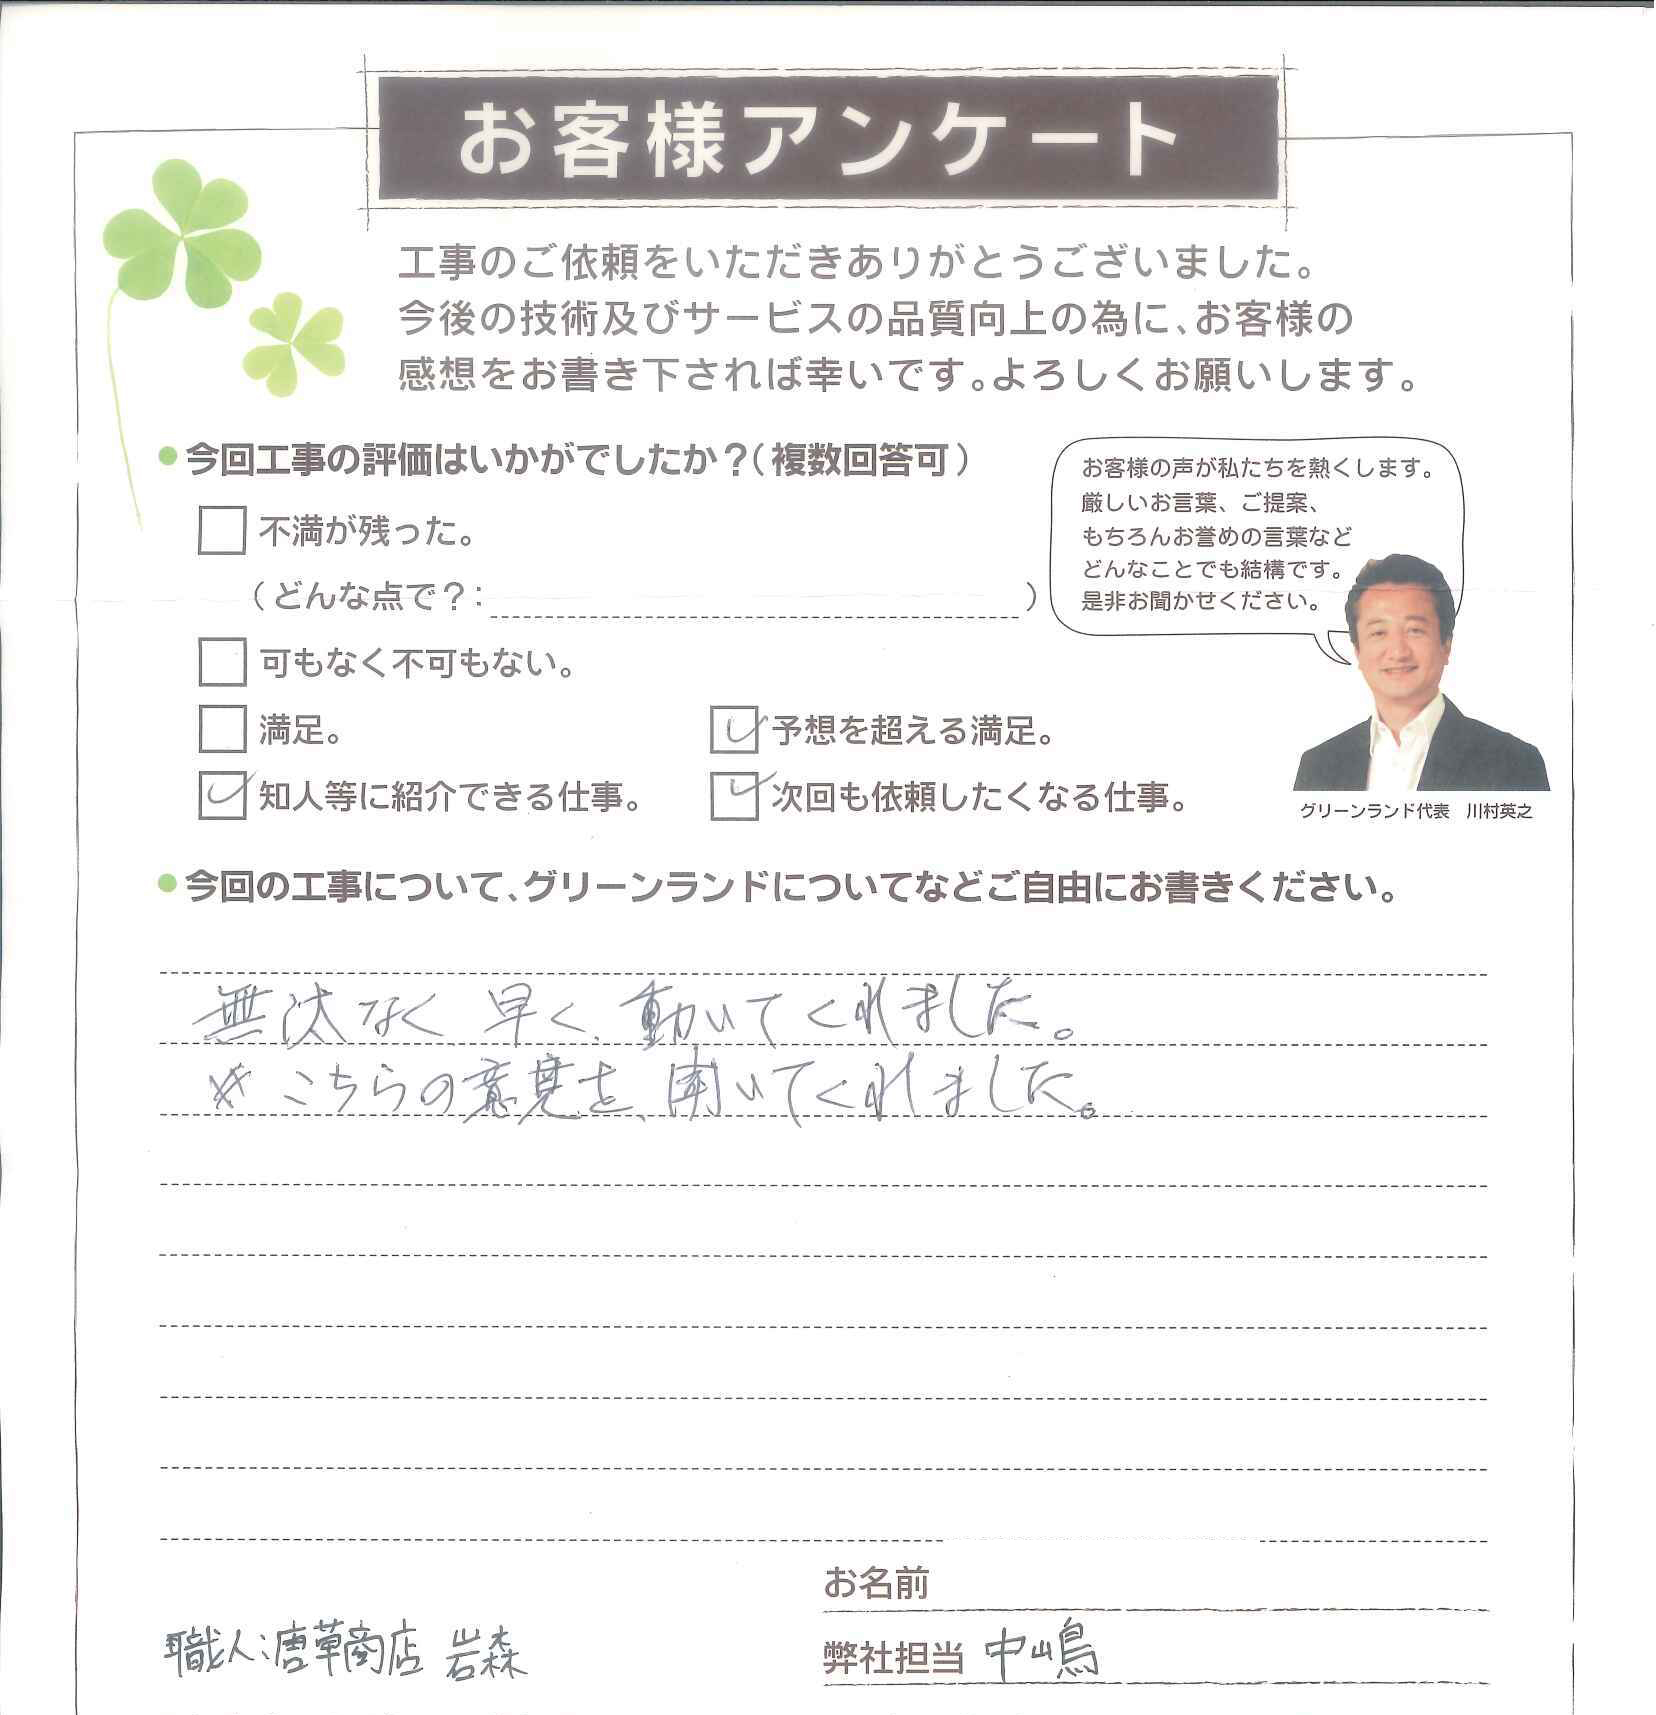 お客様アンケート
工事のご依頼をいただきありがとうございました。
今後の技術及びサービスの品質向上の為に、お客様の
感想をお書き下されば幸いです。よろしくお願いします。
今回工事の評価はいかがでしたか？（複数回答可）
不満が残った。
（どんな点で？：　）
可もなく不可もない。
満足。
予想を超える満足。
知人等に紹介できる仕事。
次回も依頼したくなる仕事。
お客様の声が私たちを熱くします。
厳しいお言葉、ご提案、
もちろんお誉めの言葉など
どんなことでも結構です。
是非お聞かせください。
グリーンランド代表　川村英之
今回の工事について、グリーンランドについてなどご自由にお書きください。
無汰なく、早く、動いてくれました。
※こちらの意見を、聞いてくれました。
お名前
職人：唐草商店 岩森
弊社担当 中嶋